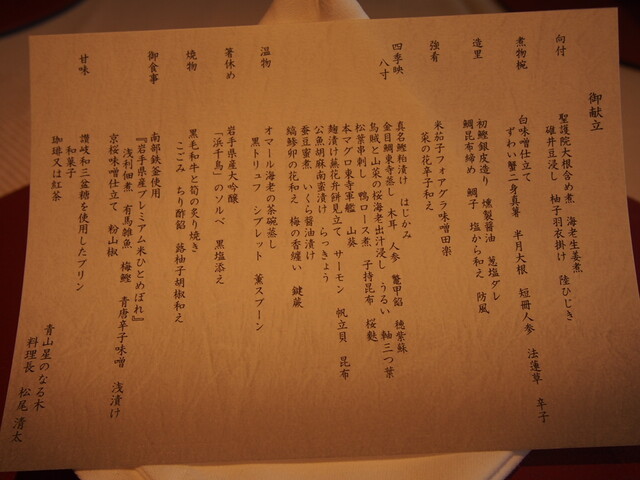 御献立
向付
聖護院大根含め煮 海老生姜煮
碓井豆浸し 柚子羽衣掛け 陸ひじき
煮物椀
白味噌仕立て
ずわい蟹二身真薯 半月大根 短冊人参 法蓮草 辛子
造里
初鰹銀皮造り 燻製醤油 葱塩ダレ
鯛昆布締め 鯛子 塩から和え 防風
強肴
米茄子フォアグラ味噌田楽
菜の花辛子和え
四季映
八寸
真名鰹粕漬け はじかみ
金目鯛東寺蒸し 木耳 人参 鼈甲餡 穂紫蘇
烏賊と山菜の桜海老出汁浸し うるい 軸三つ葉
松葉串刺し 鴨ロース煮 子持昆布 桜麩
本マグロ東寺軍艦 山葵
麹漬け蕪花弁餅見立て サーモン 帆立貝 昆布
公魚胡麻南蛮漬け らっきょう
蚕豆蜜煮 いくら醤油漬け
縞鯵卯の花和え 梅の香纏い 鍵蕨
温物
オマール海老の茶碗蒸し
黒トリュフ シブレット 薫スプーン
箸休め
岩手県産大吟醸
「浜千鳥」のソルベ 黒塩添え
焼物
黒毛和牛と筍の炙り焼き
こごみ ちり酢餡 蕗柚子胡椒和え
御食事
南部鉄釜使用
『岩手県産プレミアム米ひとめぼれ』
浅利佃煮 有馬雑魚 梅鰹 青唐辛子味噌 浅漬け
京桜味噌仕立て 粉山椒
甘味
讃岐和三盆糖を使用したプリン
和菓子
珈琲又は紅茶
青山星のなる木
料理長 松尾 清太